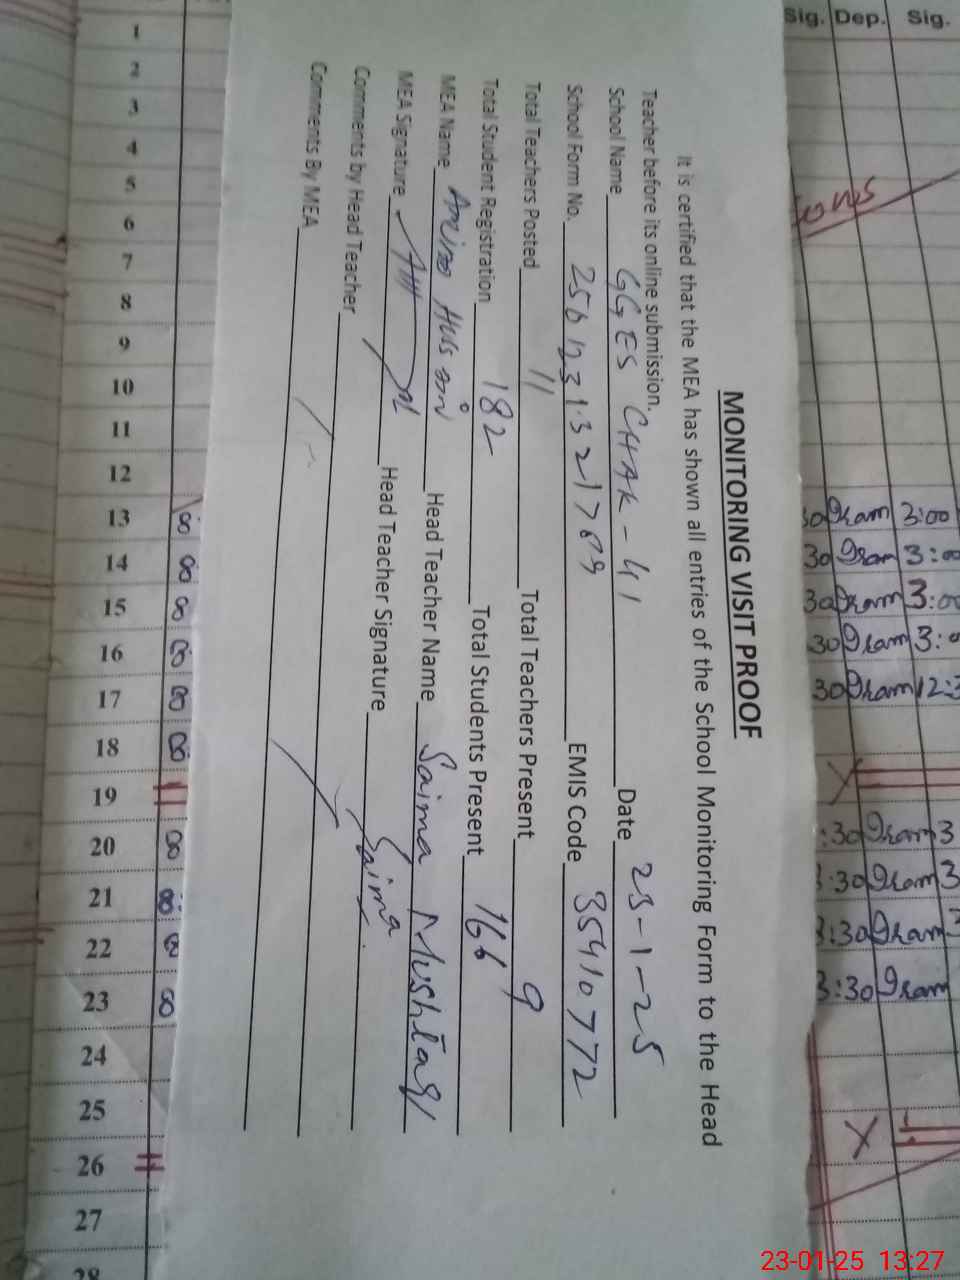 MONITORING VISIT PROOF
It is certified that the MEA has shown all entries of the School Monitoring Form to the Head
Teacher before its online submission.
School Name GGES CHAK-41 Date 23-1-25
School Form No. EMIS Code 35410772
Total Teachers Posted 11 Total Teachers Present 9
Total Student Registration 182 Total Students Present 166
MEA Name Head Teacher Name Saima Mushtaq
MEA Signature Head Teacher Signature Saima
Comments by Head Teacher
Comments By MEA
Sig. Dep. Sig.
3:00
3:00
3:00
3:0
12:3
X
:30 3
3:30 3
3:30
3:30
X
1
2
3
4
5
6
7
8
9
10
11
12
13 8
14 8
15 8
16 8
17 8
18 8
19
20 8
21 8
22 8
23 8
24
25
26
27
28
23-01-25 13:27